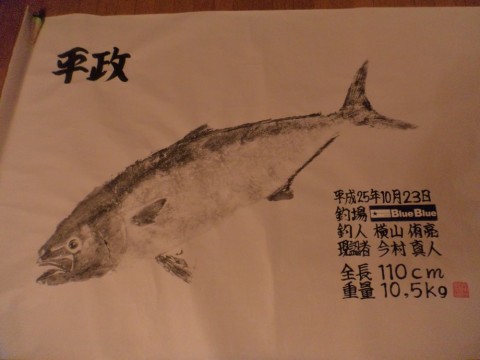 平政
平成25年10月23日
釣場 BlueBlue
釣人 横山 侑亮
現認者 今村 真人
全長 110cm
重量 10.5kg